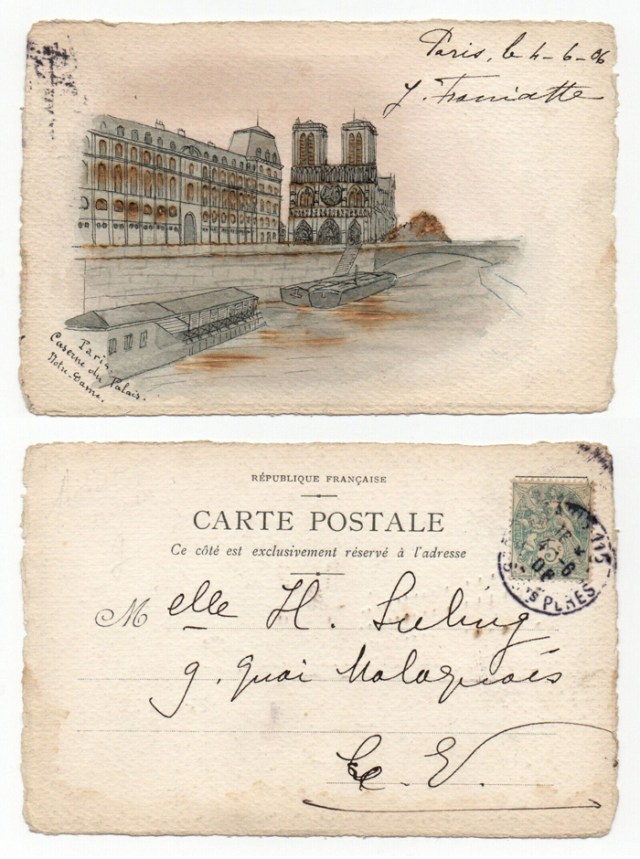 Paris, le 4-6-06
J. Franiatte
Paris.
Caserne du Palais.
Notre-Dame.
RÉPUBLIQUE FRANÇAISE
CARTE POSTALE
Ce côté est exclusivement réservé à l'adresse
Melle H. Suling
9. Quai Malaquais
E. V.
PERES